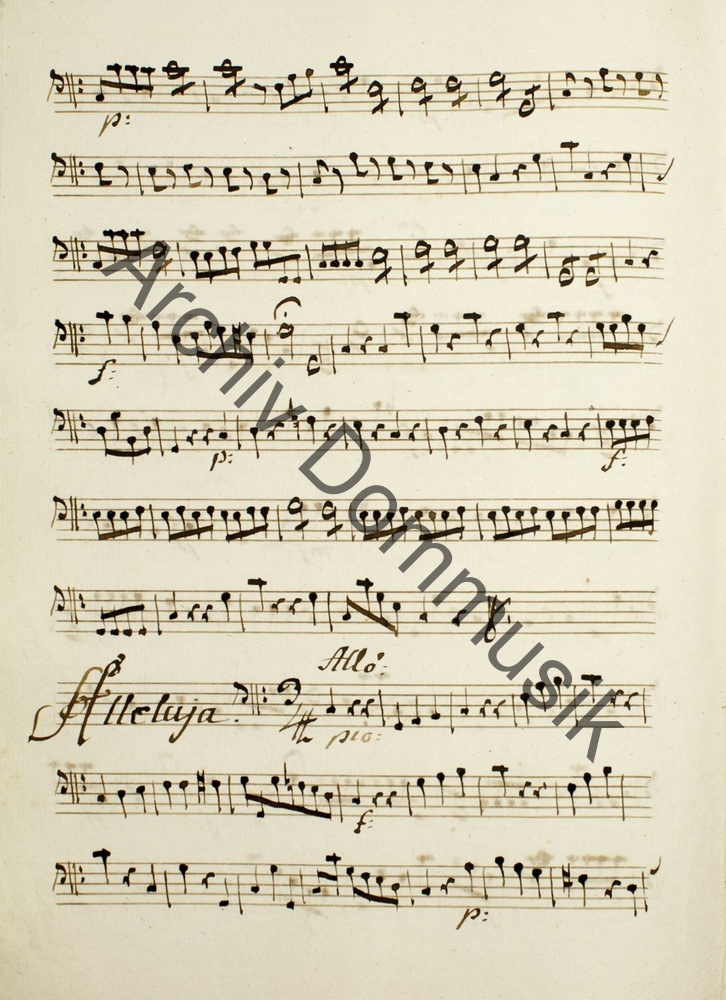 p:
f:
p: f:
Allo:
Alleluja. 3/4
pio:
f:
p:
Archiv Dommusik